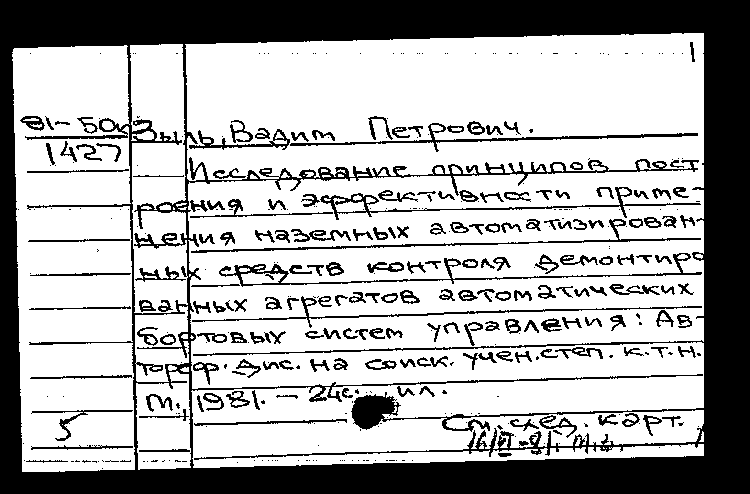 81-50к Зыль, Вадим Петрович.
1427
Исследование принципов пост-
роения и эффективности приме-
нения наземных автоматизирован-
ных средств контроля демонтиро
ванных агрегатов автоматических
бортовых систем управления: Ав-
тореф. дис. на соиск. учен. степ. к.т.н.
М., 1981. - 24с. ил.
5 См. след. карт.
16/VI-81.